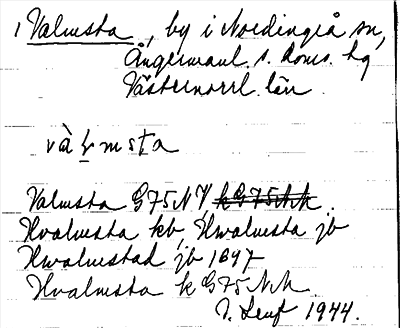 1 Valmsta, by i Nordingrå sn,
Ångermanl. s. doms. hg
Västernorrl. län.
vàḷmsta
Valmsta G75NV, k G75NN.
Hvalmsta kb, Hwalmsta jb
Hwalmstad jb 1697
Hvalmsta k G75 NN
1944.